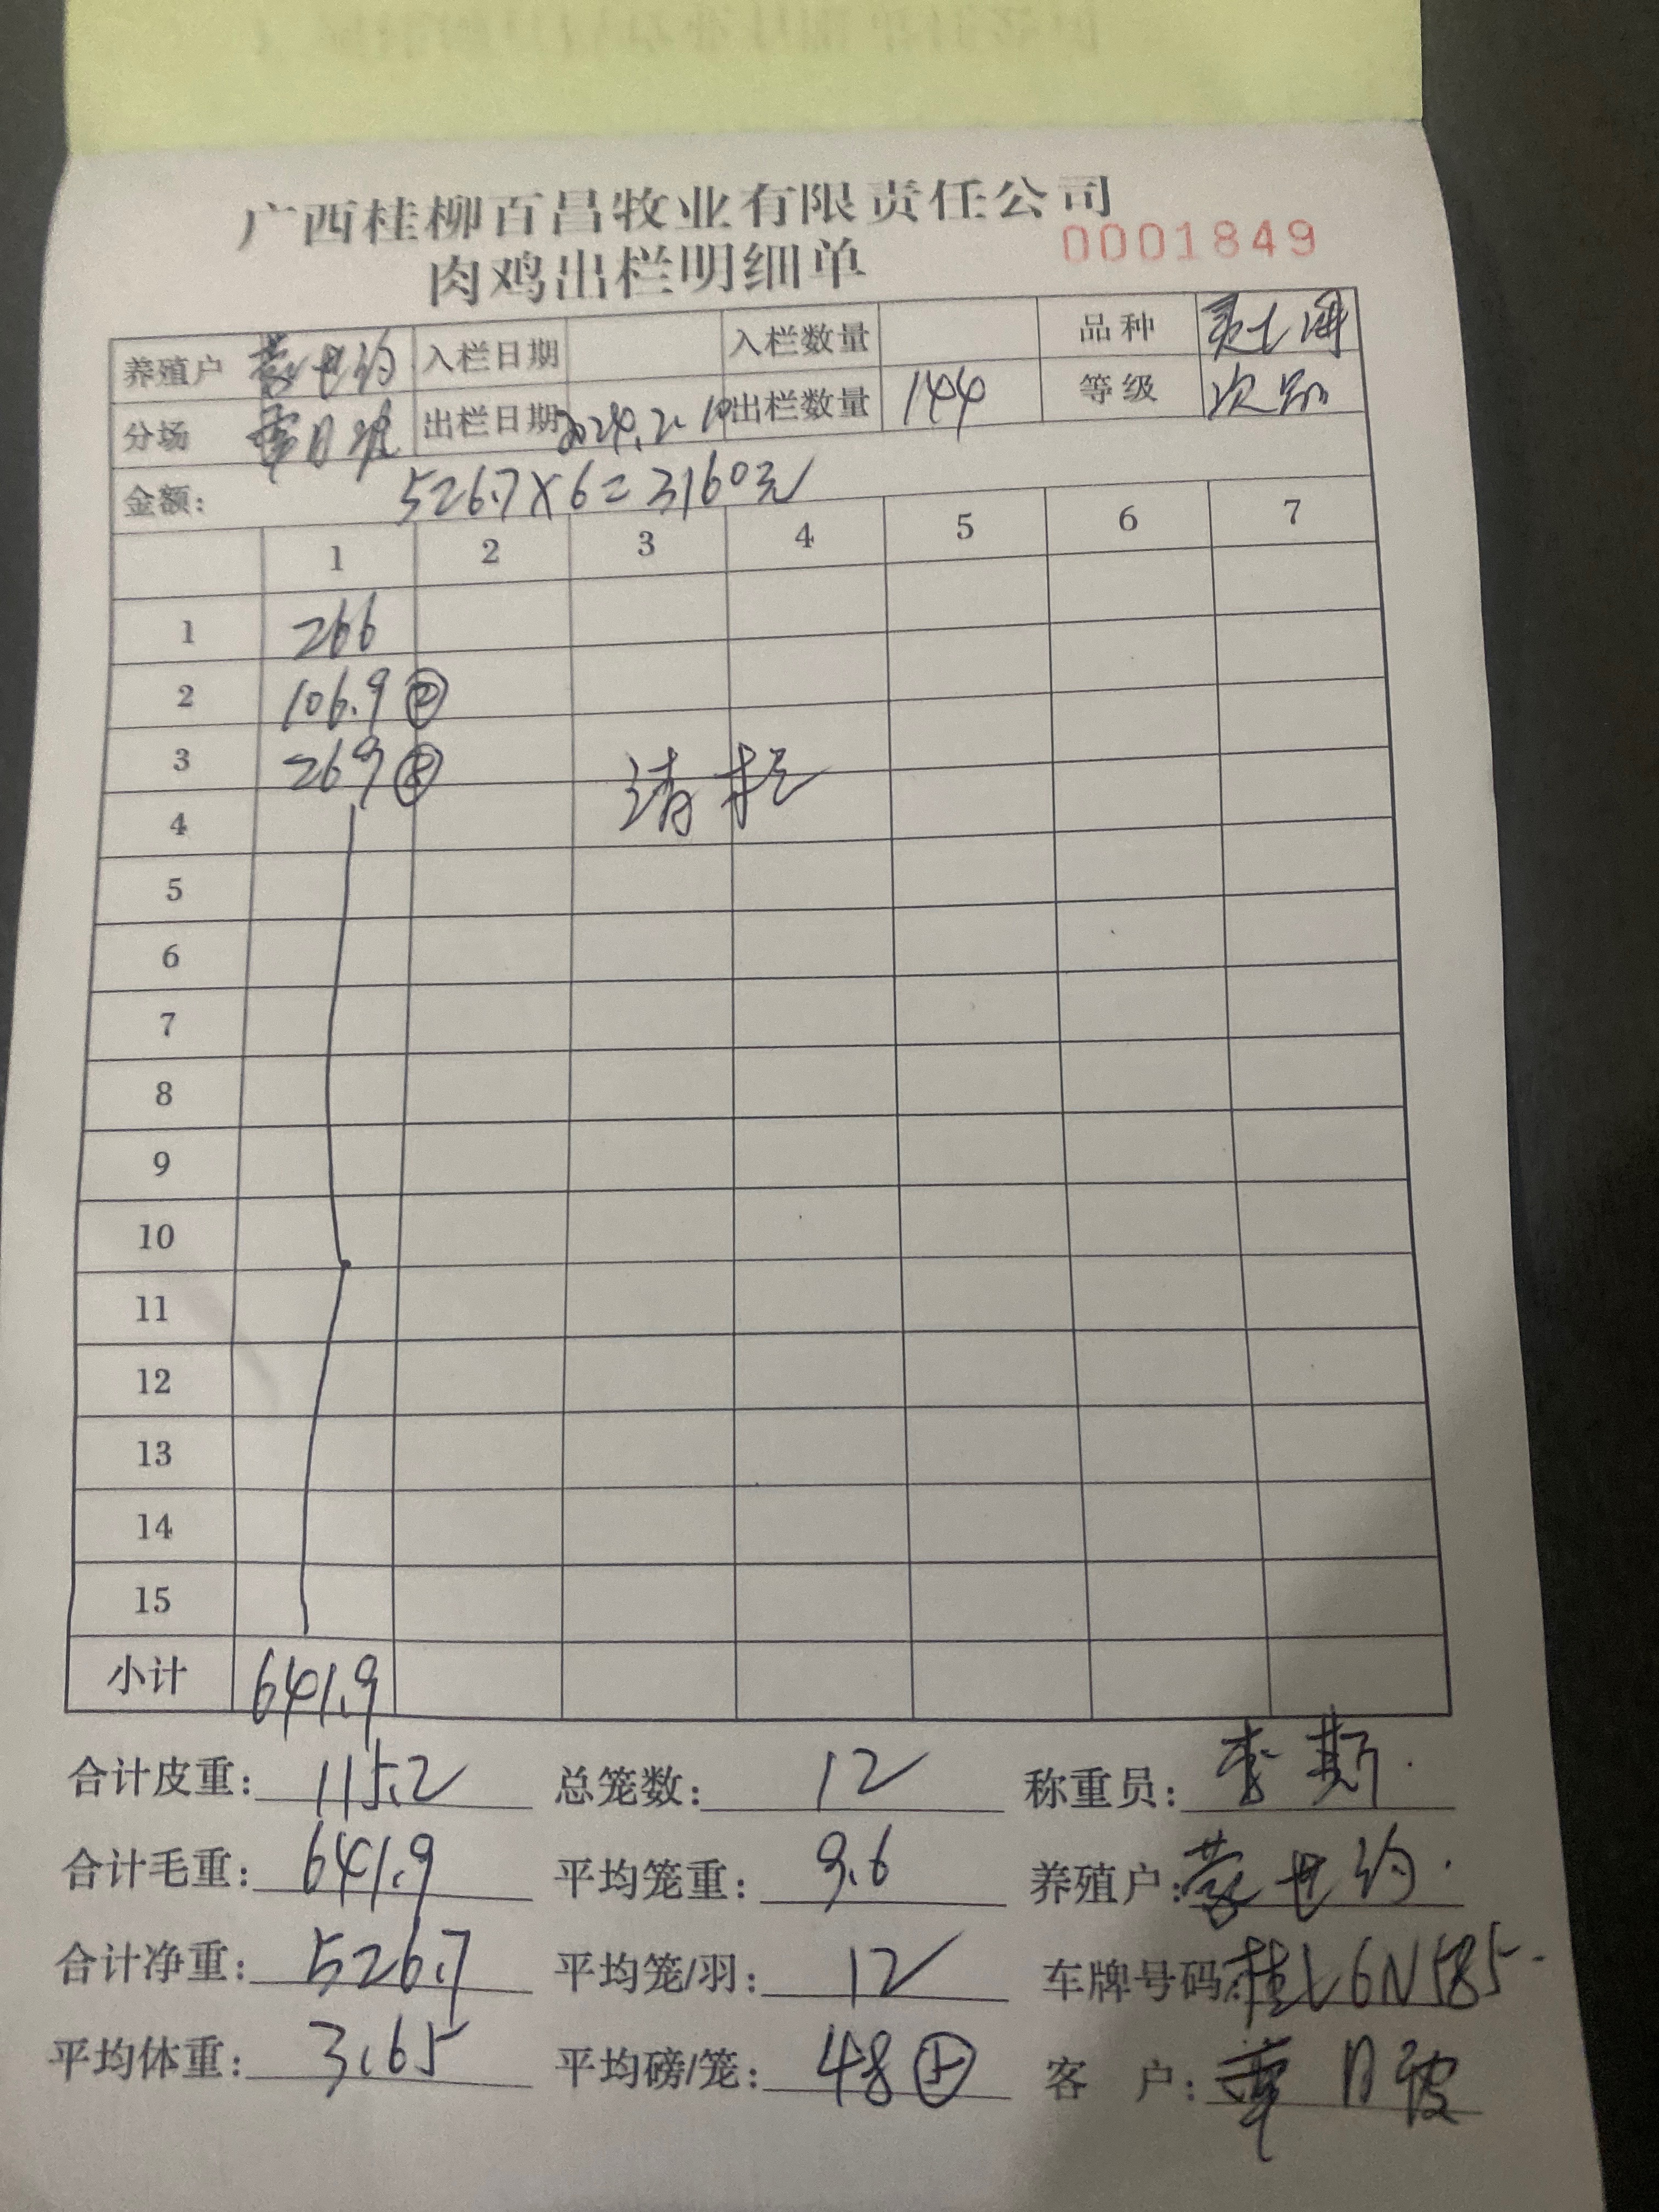 广西桂柳百昌牧业有限责任公司
肉鸡出栏明细单 0001849
养殖户 蒙世约 入栏日期 入栏数量 品种
分场 覃日波 出栏日期 2024.2.10 出栏数量 144 等级 次品
金额: 526.7×6=3160元
1 2 3 4 5 6 7
1 266
2 106.9 ②
3 269 ⑤ 请
4
5
6
7
8
9
10
11
12
13
14
15
小计 641.9
合计皮重: 115.2 总笼数: 12 称重员: 李斯
合计毛重: 641.9 平均笼重: 9.6 养殖户: 蒙世约
合计净重: 526.7 平均笼/羽: 12 车牌号码: 桂L6N585
平均体重: 3.65 平均磅/笼: 48 客 户: 覃日波